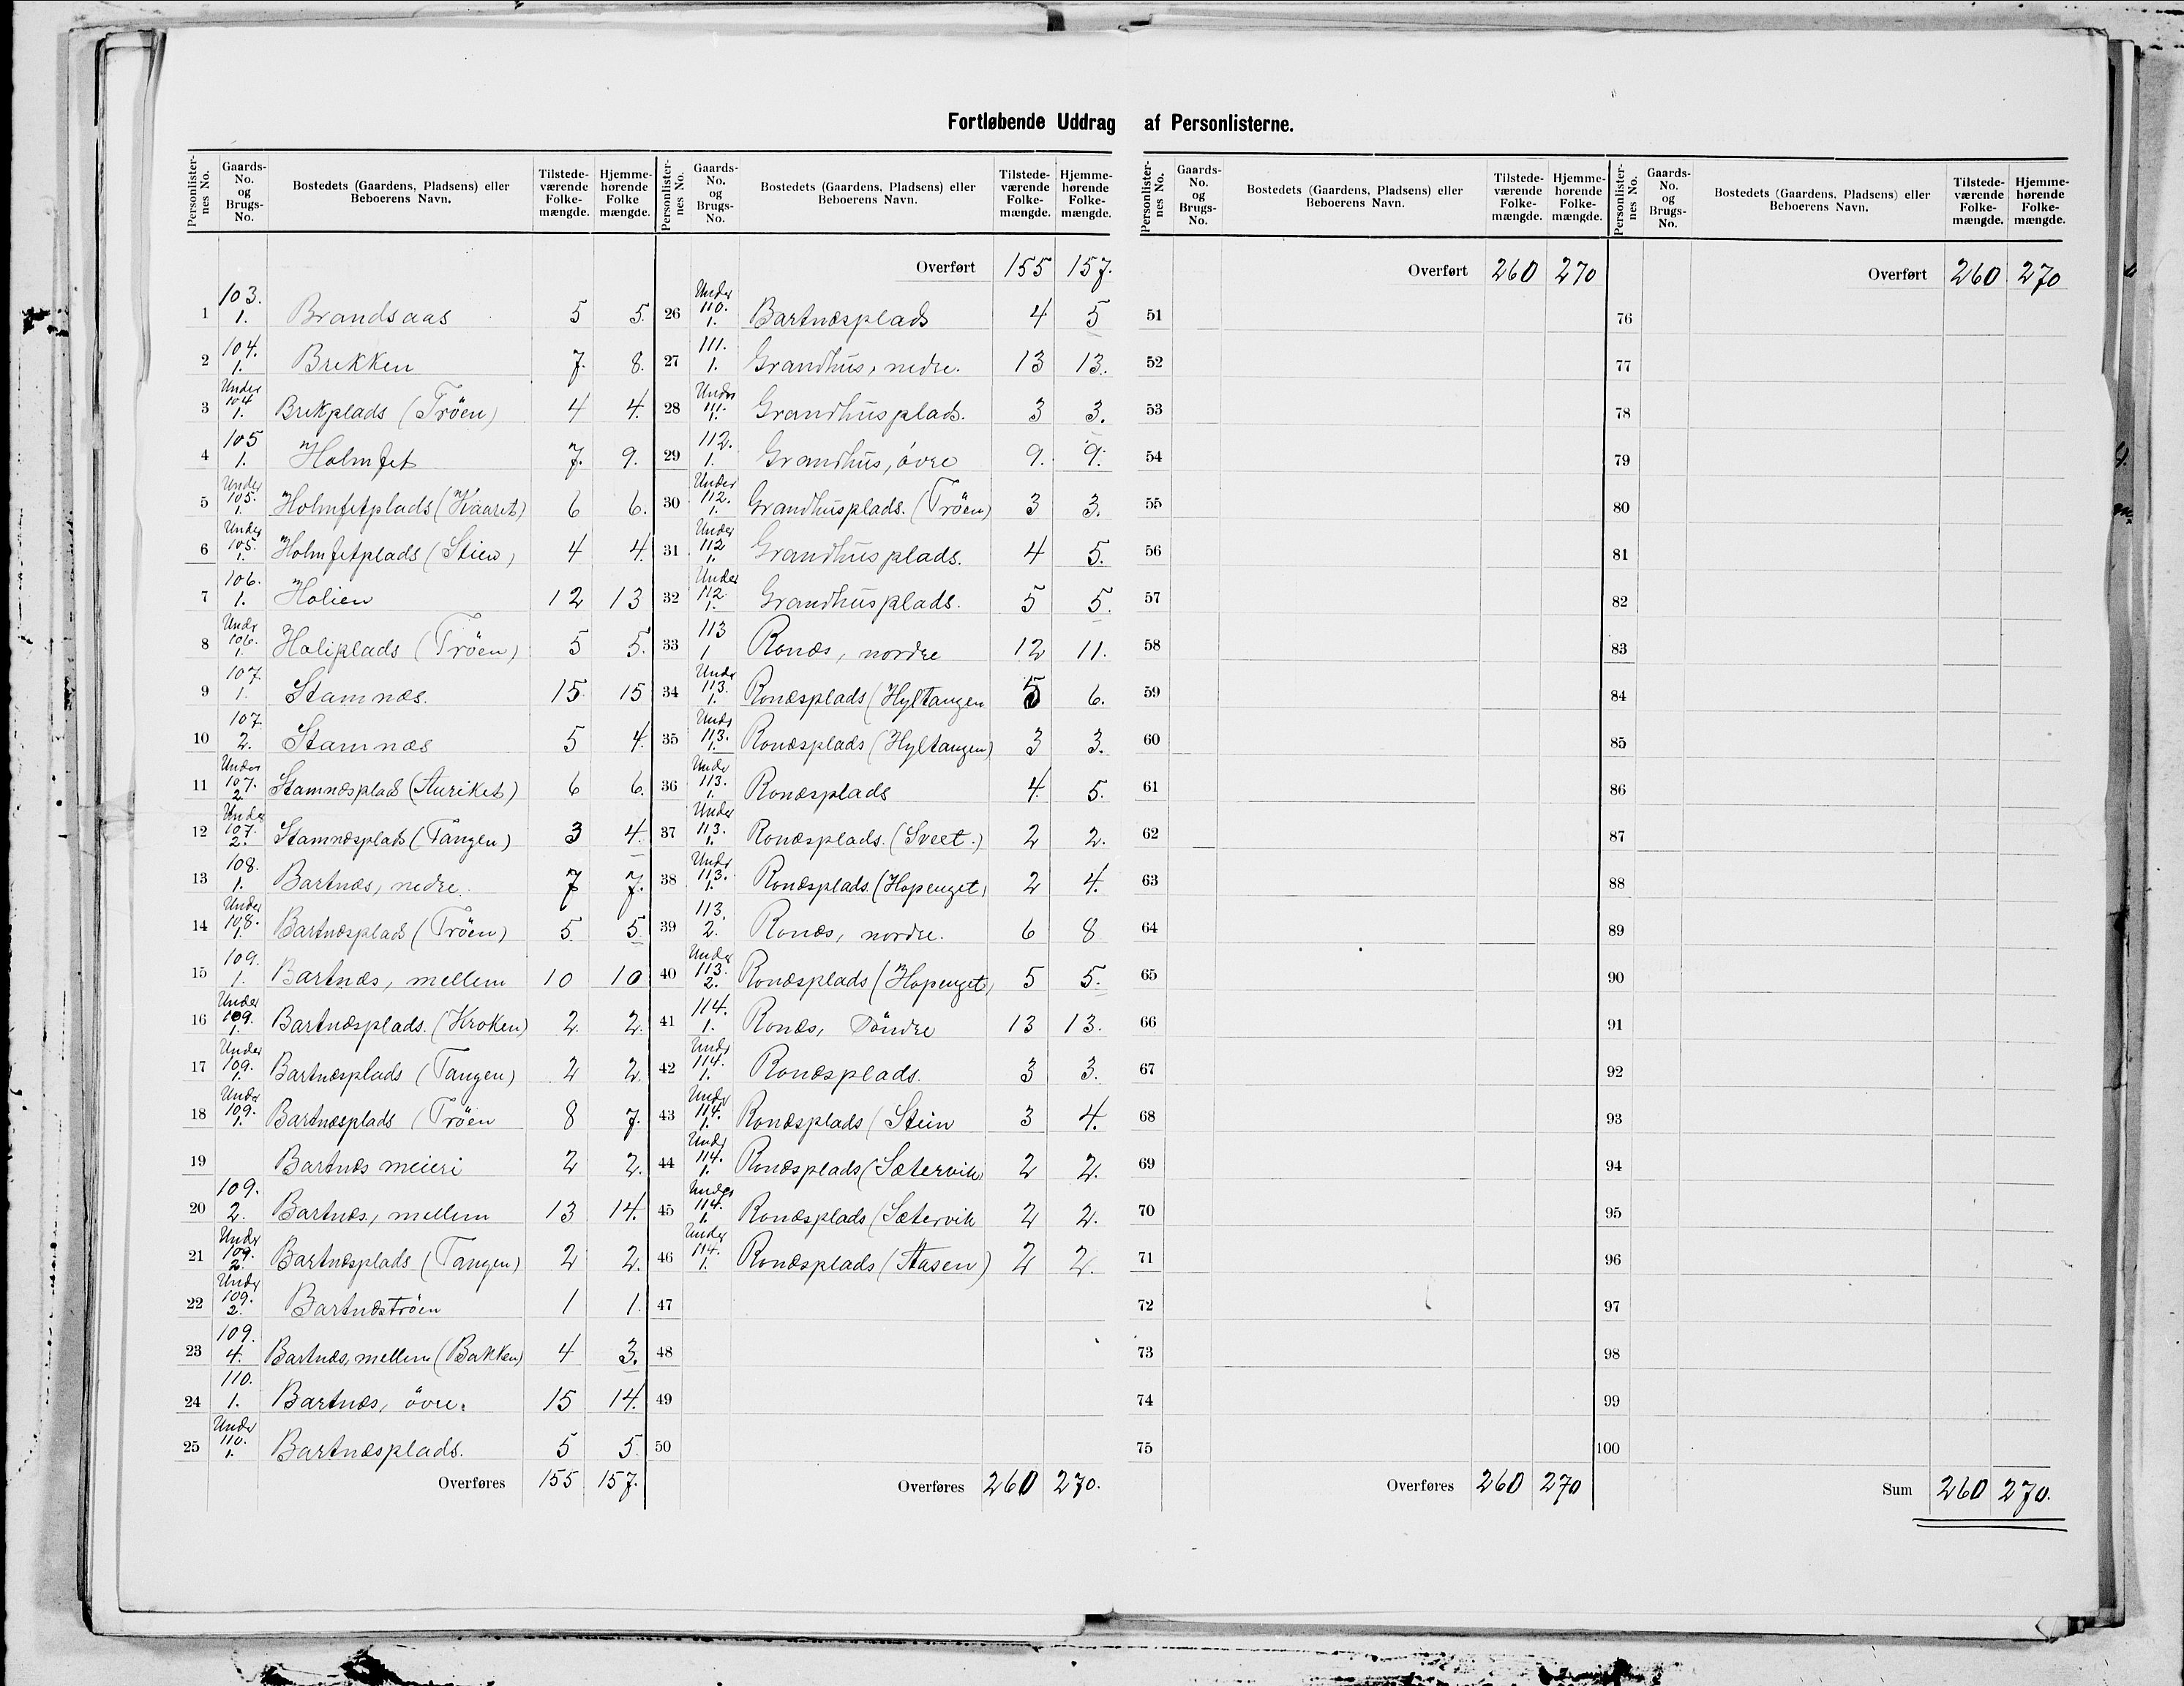 Fortløbende Uddrag af Personlisterne.
Personlisternes No. | Gaards-No. og Brugs-No. | Bostedets (Gaardens, Pladsens) eller Beboerens Navn. | Tilstedeværende Folkemængde. | Hjemmehørende Folkemængde.
1 | 103. 1. | Brandsaas | 5 | 5.
2 | 104. 1. | Brekken | 7. | 8.
3 | Under 104 1. | Brekplads (Tröen) | 4 | 4.
4 | 105 1. | Holmfet | 7. | 9.
5 | Under 105. 1. | Holmfetplads (Haaret) | 6 | 6.
6 | Under 105. 1. | Holmfetplads (Stien) | 4 | 4.
7 | 106. 1. | Holien | 12 | 13
8 | Undr 106. 1. | Holiplads (Tröen) | 5 | 5.
9 | 107. 1. | Stamnæs. | 15. | 15
10 | 107. 2. | Stamnæs | 5 | 4.
11 | Under 107. 2 | Stamnæsplads (Auriket) | 6 | 6.
12 | Under 107. 2. | Stamnæsplads (Tangen) | 3 | 4.
13 | 108. 1. | Bartnæs, nedre. | 7 | 7.
14 | Under 108. 1. | Bartnæsplads (Tröen) | 5 | 5
15 | 109. 1. | Bartnæs, mellem | 10 | 10
16 | Under 109. 1. | Bartnæsplads. (Kroken) | 2 | 2.
17 | Under 109. 1. | Bartnæsplads (Tangen) | 2 | 2.
18 | Under 109. 1. | Bartnæsplads (Tröen | 8 | 7.
19 | Bartnæs meieri | 2 | 2.
20 | 109. 2. | Bartnæs, mellem | 13 | 14.
21 | Undr 109. 2. | Bartnæsplads (Tangen) | 2 | 2.
22 | Undr 109. 2. | Bartnæströen | 1 | 1.
23 | 109. 4. | Bartnæs, mellem (Bakken) | 4 | 3.
24 | 110. 1. | Bartnæs, övre. | 15 | 14.
25 | Under 110. 1. | Bartnæsplads. | 5 | 5.
Overføres | 155 | 157.
Personlisternes No. | Gaards-No. og Brugs-No. | Bostedets (Gaardens, Pladsens) eller Beboerens Navn. | Tilstedeværende Folkemængde. | Hjemmehørende Folkemængde.
Overført | 155 | 157.
26 | Under 110. 1. | Bartnæsplads | 4 | 5
27 | 111. 1. | Grandhus, nedre. | 13 | 13.
28 | Under 111. 1. | Grandhusplads. | 3 | 3.
29 | 112. 1. | Grandhus, övre | 9. | 9.
30 | Under 112. 1. | Grandhusplads. (Tröen) | 3 | 3.
31 | Under 112 1. | Grandhusplads. | 4 | 5.
32 | Under 112. 1. | Grandhusplads. | 5 | 5.
33 | 113 1 | Ronæs, nordre | 12 | 11.
34 | Undr 113. 1. | Ronæsplads (Hyltangen | 5 | 6.
35 | Undr 113. 1. | Ronæsplads (Hyltangen) | 3 | 3.
36 | Unde 113. 1. | Ronæsplads | 4. | 5.
37 | Under 113. 1. | Ronæsplads. (Sveet.) | 2 | 2.
38 | Undr 113. 1. | Ronæsplads. (Hopenget) | 2 | 4.
39 | 113. 2. | Ronæs, nordre. | 6 | 8
40 | Under 113. 2. | Ronæsplads (Hopenget) | 5 | 5.
41 | 114. 1. | Ronæs, Söndre | 13 | 13.
42 | Undr 114. 1. | Ronæsplads. | 3 | 3.
43 | Undr 114. 1. | Ronæsplads (Stein | 3 | 4.
44 | Undr 114. 1. | Ronæsplads (Sætervik) | 2 | 2.
45 | Under 114. 1. | Ronæsplads (Sætervik | 2 | 2.
46 | Under 114. 1. | Ronæsplads (Aasen) | 2 | 2.
47
48
49
50
Overføres | 260 | 270.
Personlisternes No. | Gaards-No. og Brugs-No. | Bostedets (Gaardens, Pladsens) eller Beboerens Navn. | Tilstedeværende Folkemængde. | Hjemmehørende Folkemængde.
Overført | 260 | 270
51
52
53
54
55
56
57
58
59
60
61
62
63
64
65
66
67
68
69
70
71
72
73
74
75
Overføres | 260 | 270
Personlisternes No. | Gaards-No. og Brugs-No. | Bostedets (Gaardens, Pladsens) eller Beboerens Navn. | Tilstedeværende Folkemængde. | Hjemmehørende Folkemængde.
Overført | 260 | 270
76
77
78
79
80
81
82
83
84
85
86
87
88
89
90
91
92
93
94
95
96
97
98
99
100
Sum | 260 | 270.